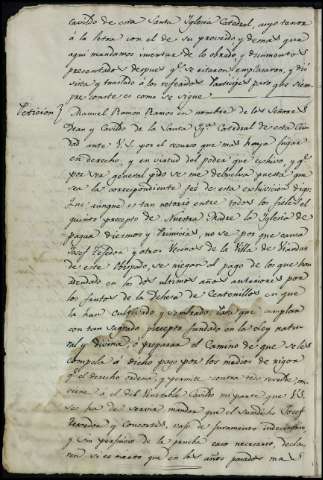 cavildo de esta Santa Iglesia Catedral, cuyo tenor
à la letra con el de su proveido y demas que
aqui mandamos incertar de lo obrado, y documentos
presentados despues qe se citaron, emplazaron, y dió
vista y traslado à los referidos Partícipes para qe siem
pre conste es como se sigue
Peticion Manuel Ramon Ramos en nombre de los Señores
Dean y Cavildo de la Santa Iga Catedral de esta Ciu
dad ante V.S. por el recurso que mas haya lugar
en derecho, y en virtud del poder que exhivo, y qe
por ser general pido se me debuelva puesta que
sea la correspondiente feé de esta exhivicion digo:
Que aunque es tan notorio entre todos los fieles el
quinto precepto de Nuestra Madre la Iglesia de
pagar diezmos y Primicias, no sé por que causa
Josef Texedor y otros Vecinos de la Villa de
de este Obispado, se niegan al pago de los que han
adeudado en los dos ultimos años anteriores por
los frutos de la Dehesa de Centenillos en que
la han cultivado y sembrado. Para que cumplan
con tan sagrado precepto fundado en la Ley natu
ral y divina, ò preparar el Camino de que se les
compela à dicho pago por los medios de rigor
qe el derecho ordena y permite contra todo revelde, con
viene à el del Venerable Cavildo mi parte que V.S.
se ha de servir mandar que el susodicho Josef
Texedor y Consortes, vajo de juramento indecisorio
y sin perjuicio de la prueba caso necesario, decla
ren si es cierto que en los años pasados mil